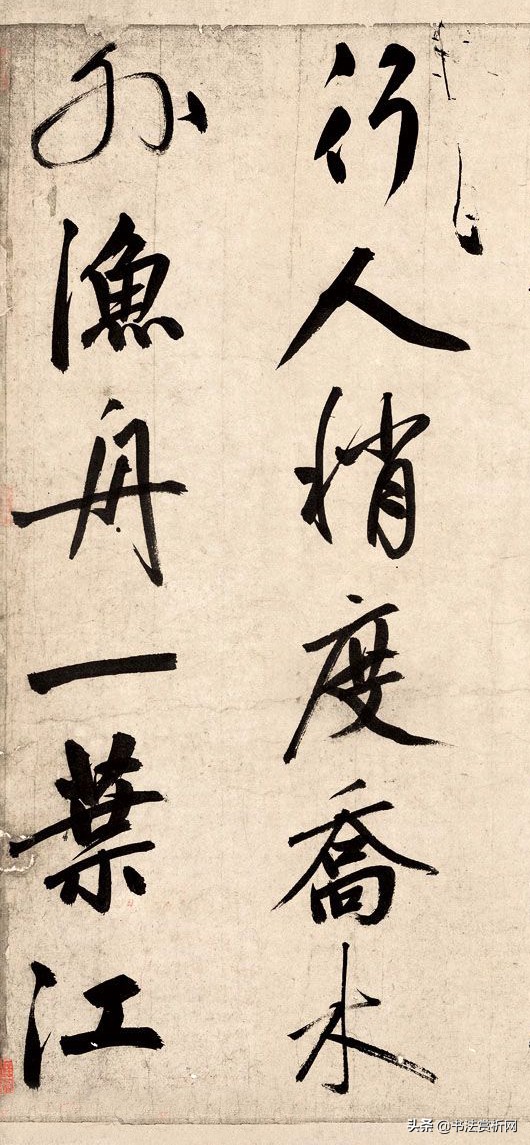 行人稍度喬木
外漁舟一葉江
头条 @书法赏析网